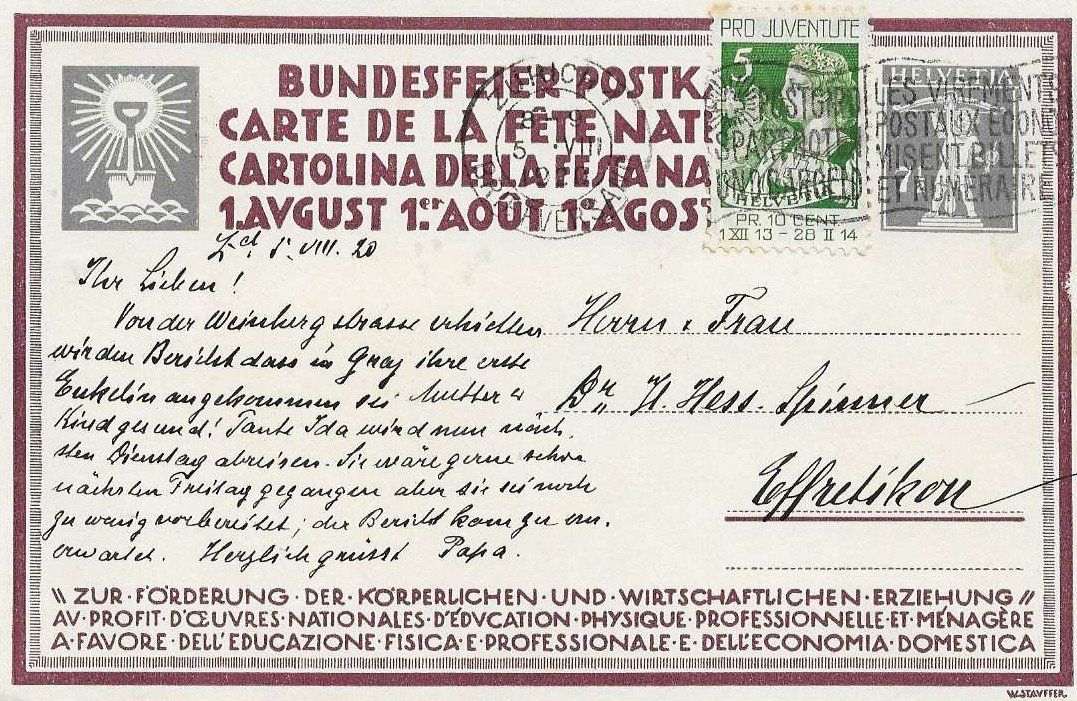 BUNDESFEIER POSTKA
CARTE DE LA FÊTE NATI
CARTOLINA DELLA FESTA NA
1.AVGUST 1er AOÛT 1º AGOS
PRO JUVENTUTE
5
HELVETIA
PR. 10 CENT
1 XII 13 - 28 II 14
HELVETIA
7½
LES VIREMENTS
POSTAUX ECONO
MISENT BILLETS
ET NUMERAIRE
5. VIII. 20
Ihr Lieben!
Von der Weinbergstrasse erhielten
wir den Bericht dass in Graz ihre erste
Enkelin angekommen sei Mutter u
Kind gesund! Tante Ida wird nun näch
sten Dienstag abreisen. Sie wäre gerne schon
nächsten Freitag gegangen aber sie sei noch
zu wenig vorbereitet; der Bericht kam zu un.
erwartet. Herzlich grüsst Papa.
Herrn u Frau
Dr. H. Hess. Spinner
Effretikon
\\ ZUR · FÖRDERUNG · DER · KÖRPERLICHEN · UND · WIRTSCHAFTLICHEN · ERZIEHUNG //
AV · PROFIT · D'ŒUVRES · NATIONALES · D'ÉDVCATION · PHYSIQUE · PROFESSIONNELLE · ET · MÉNAGÈRE
A · FAVORE · DELL'EDUCAZIONE · FISICA · E · PROFESSIONALE · E · DELL'ECONOMIA · DOMESTICA
W.STAVFFER.